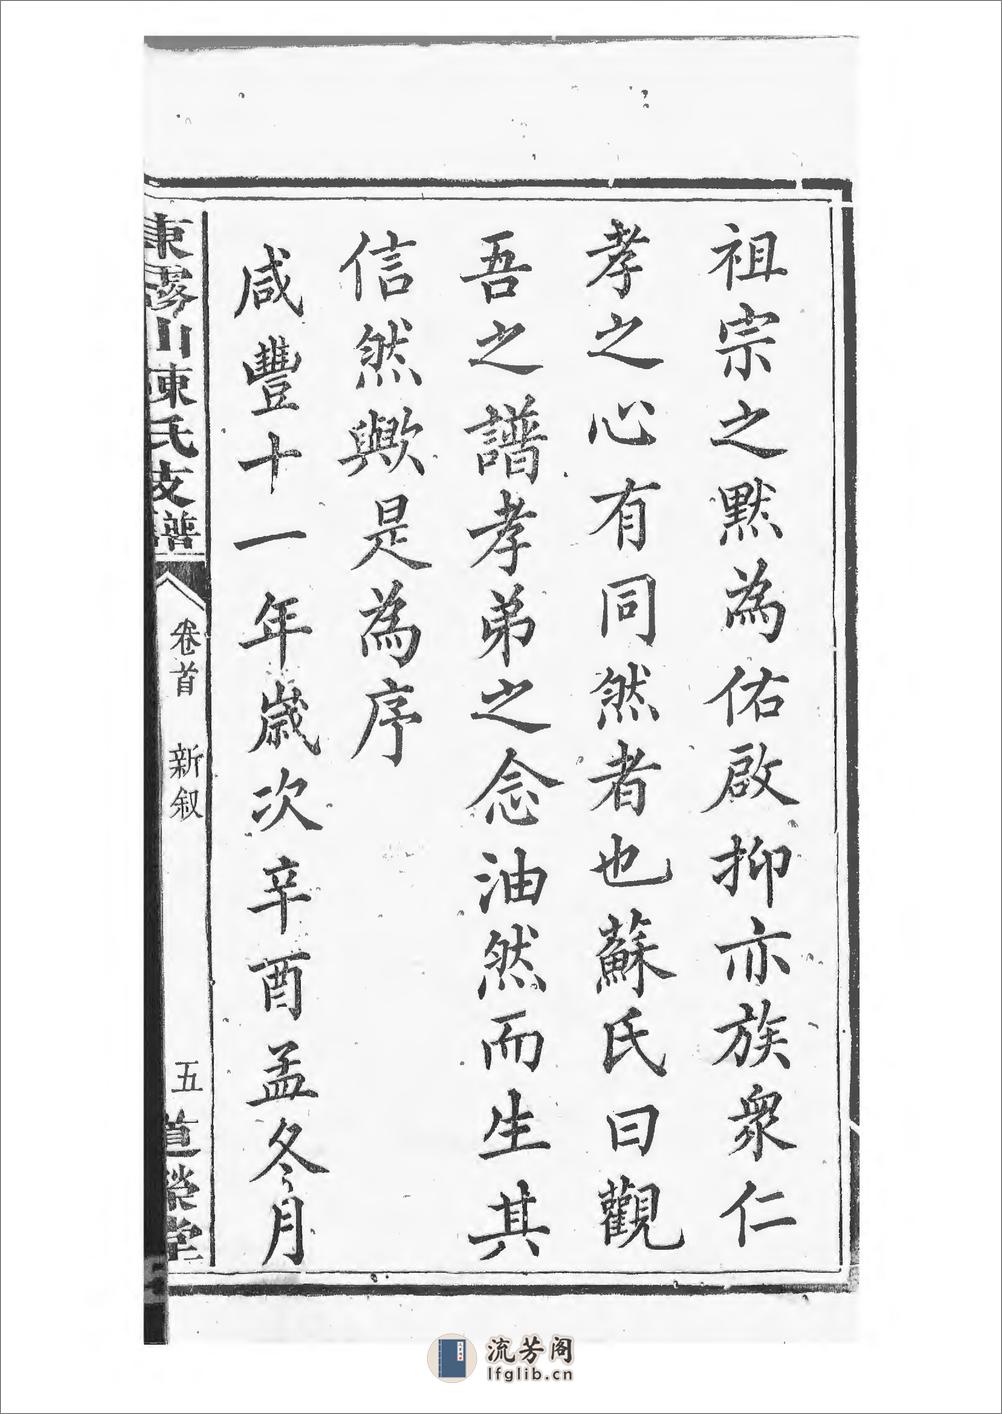 祖宗之黙為佑啟抑亦族衆仁
孝之心有同然者也蘇氏曰觀
吾之譜孝弟之念油然而生其
信然歟是為序
咸豐十一年歲次辛酉孟冬月
東霧山陳氏支譜
卷首 新叙
五
道榮堂
流芳阁
lfglib.cn